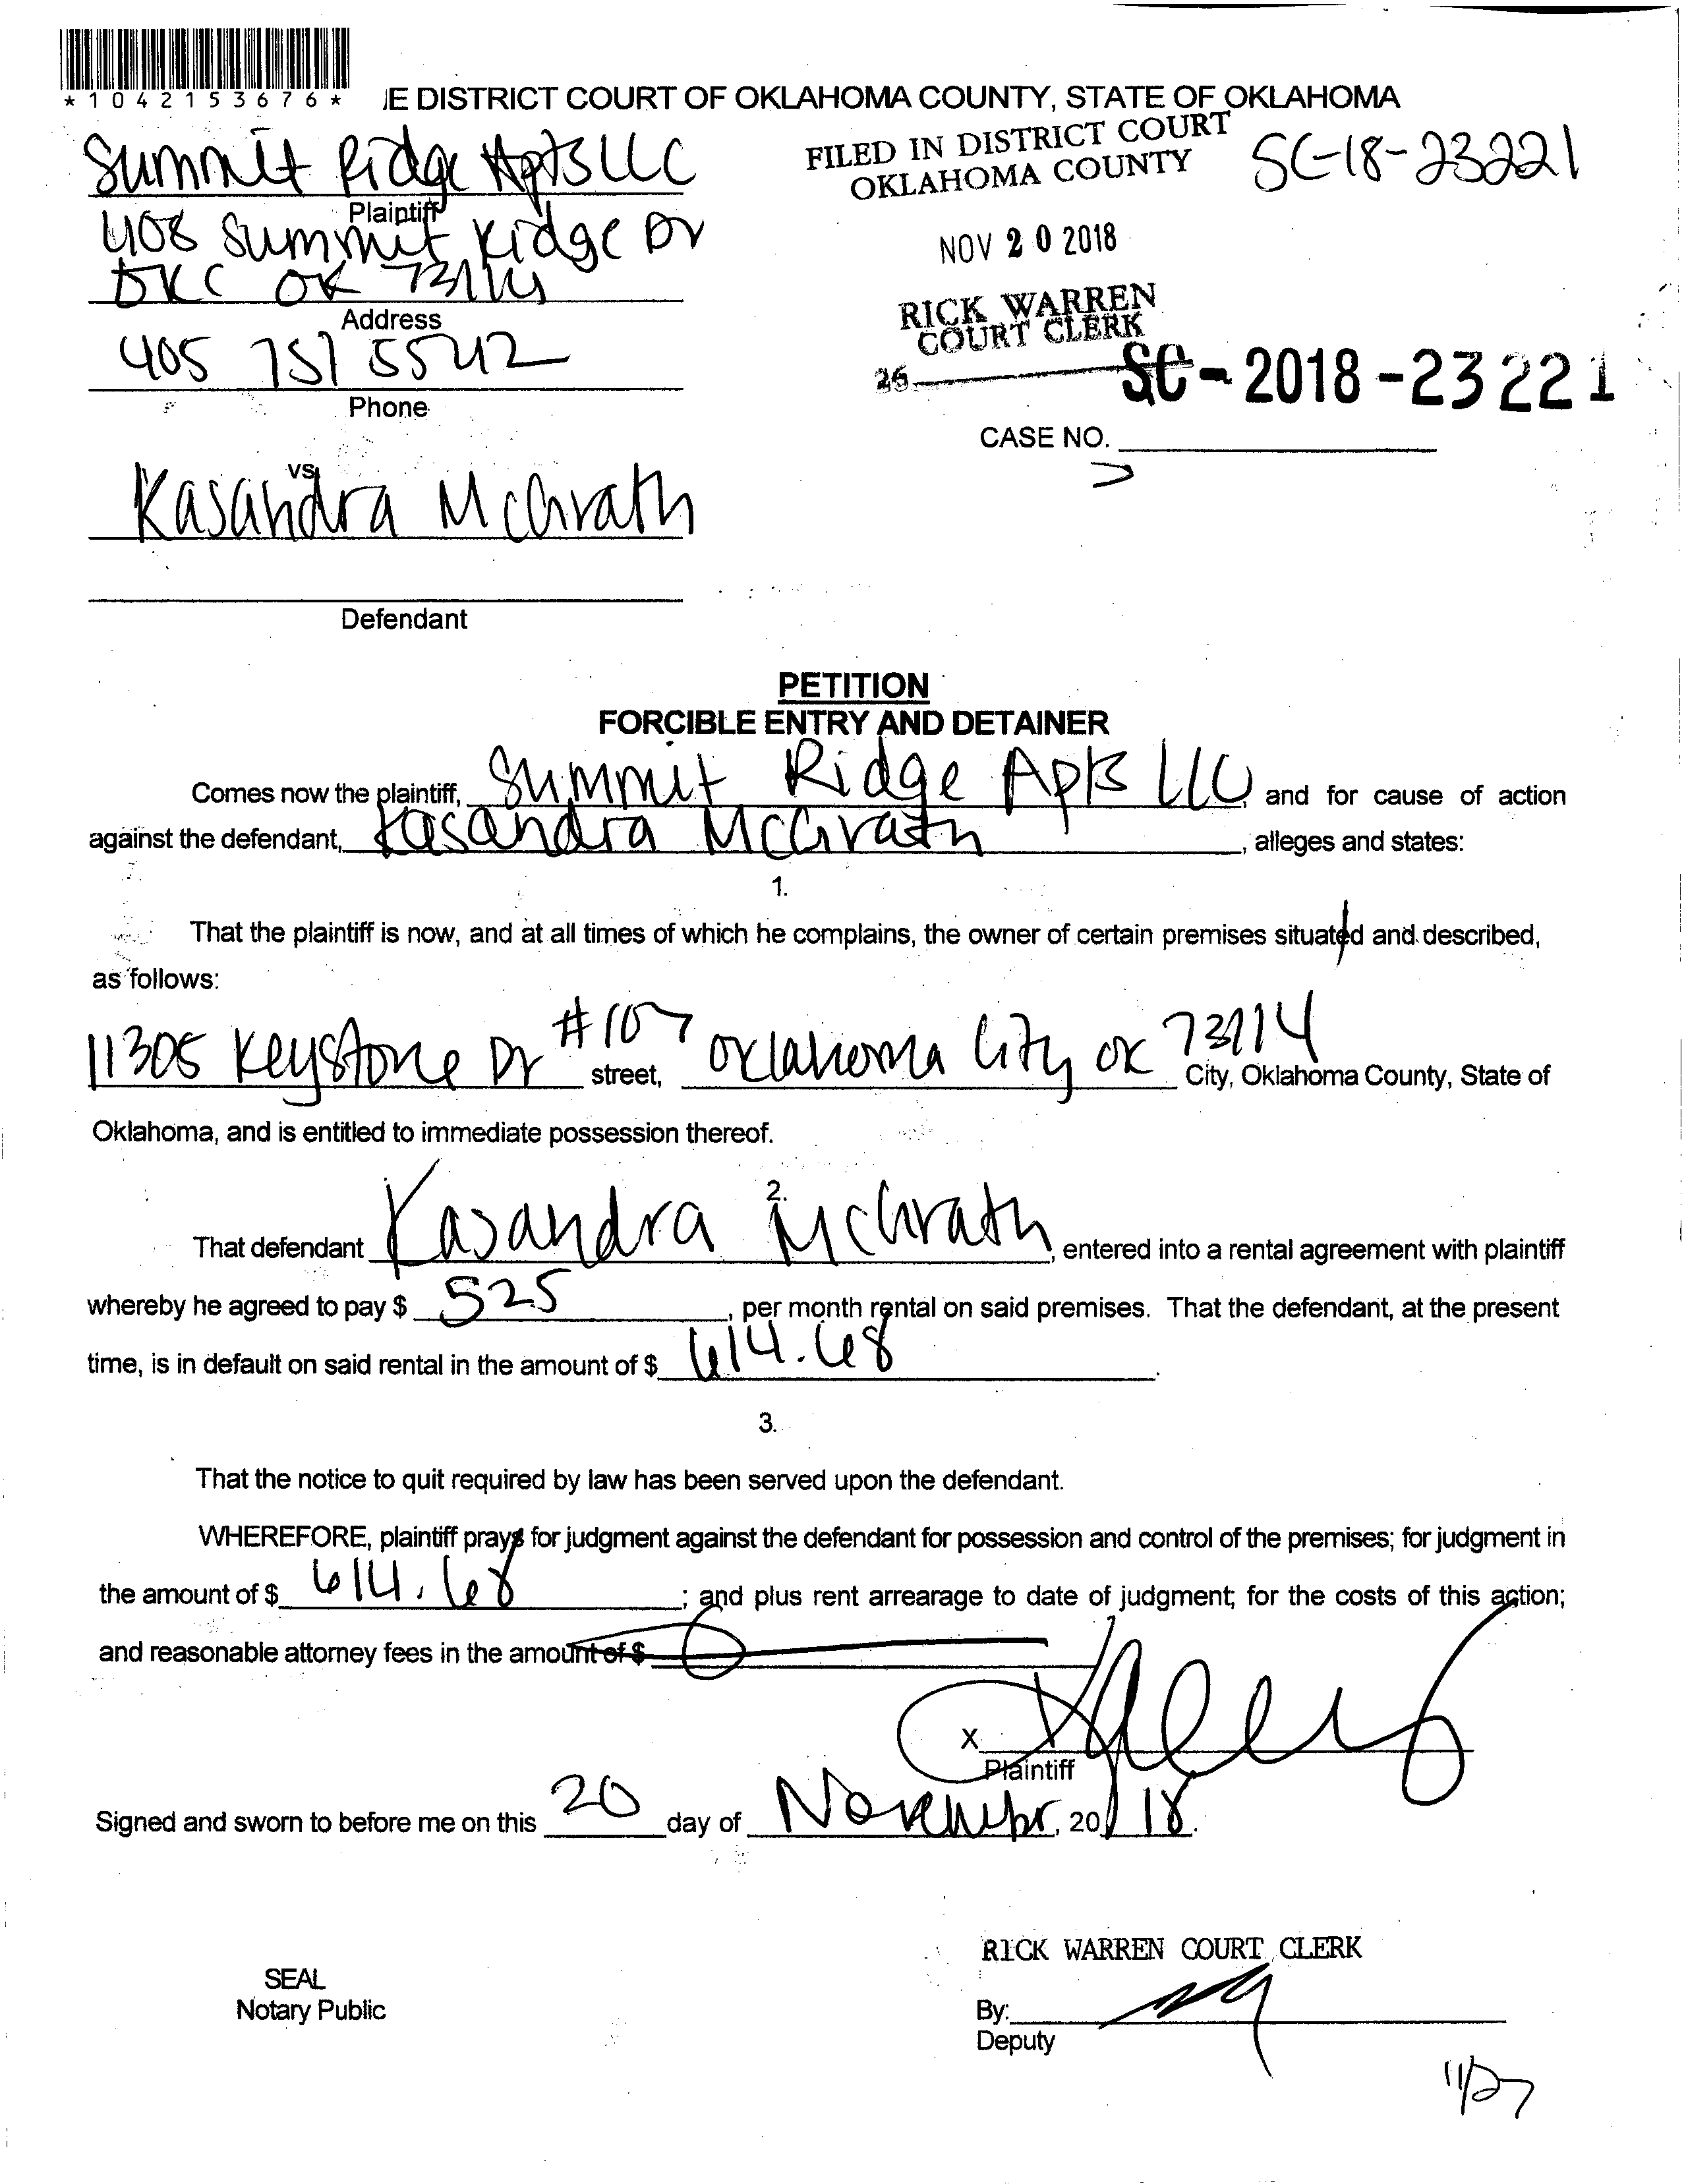 *1042153676*
IE DISTRICT COURT OF OKLAHOMA COUNTY, STATE OF OKLAHOMA
Summit Ridge Apts LLC
Plaintiff
FILED IN DISTRICT COURT
OKLAHOMA COUNTY
SC-18-23221
408 Summit Ridge Dr
OKC OK 73114
Address
NOV 20 2018
RICK WARREN
COURT CLERK
405 751 5542
Phone
26
SC-2018-23221
CASE NO.
vs
Kasandra McGrath
Defendant
PETITION
FORCIBLE ENTRY AND DETAINER
Comes now the plaintiff, Summit Ridge Apts LLC, and for cause of action
against the defendant, Kasandra McGrath, alleges and states:
1.
That the plaintiff is now, and at all times of which he complains, the owner of certain premises situated and described,
as follows:
11305 Keystone Dr #107 street, Oklahoma City OK 73114 City, Oklahoma County, State of
Oklahoma, and is entitled to immediate possession thereof.
2.
That defendant Kasandra McGrath, entered into a rental agreement with plaintiff
whereby he agreed to pay $ 525, per month rental on said premises. That the defendant, at the present
time, is in default on said rental in the amount of $ 614.68.
3.
That the notice to quit required by law has been served upon the defendant.
WHEREFORE, plaintiff prays for judgment against the defendant for possession and control of the premises; for judgment in
the amount of $ 614.68; and plus rent arrearage to date of judgment; for the costs of this action;
and reasonable attorney fees in the amount of $
X
Plaintiff
Signed and sworn to before me on this 20 day of November, 20 18.
RICK WARREN COURT CLERK
SEAL
Notary Public
By:
Deputy
11/27